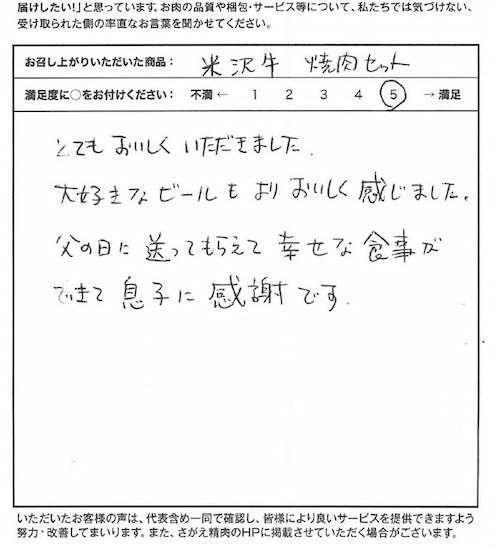 届けしたい!」と思っています。お肉の品質や梱包・サービス等について、私たちでは気づけない、
受け取られた側の率直なお言葉を聞かせてください。
お召し上がりいただいた商品： 米沢牛 焼肉セット
満足度に○をお付けください： 不満 ← 1 2 3 4 5 → 満足
とてもおいしくいただきました.
大好きなビールもよりおいしく感じました。
父の日に送ってもらえて幸せな食事が
できて息子に感謝です.
いただいたお客様の声は、代表含め一同で確認し、皆様により良いサービスを提供できますよう
努力・改善してまいります。また、さがえ精肉のHPに掲載させていただく場合がございます。